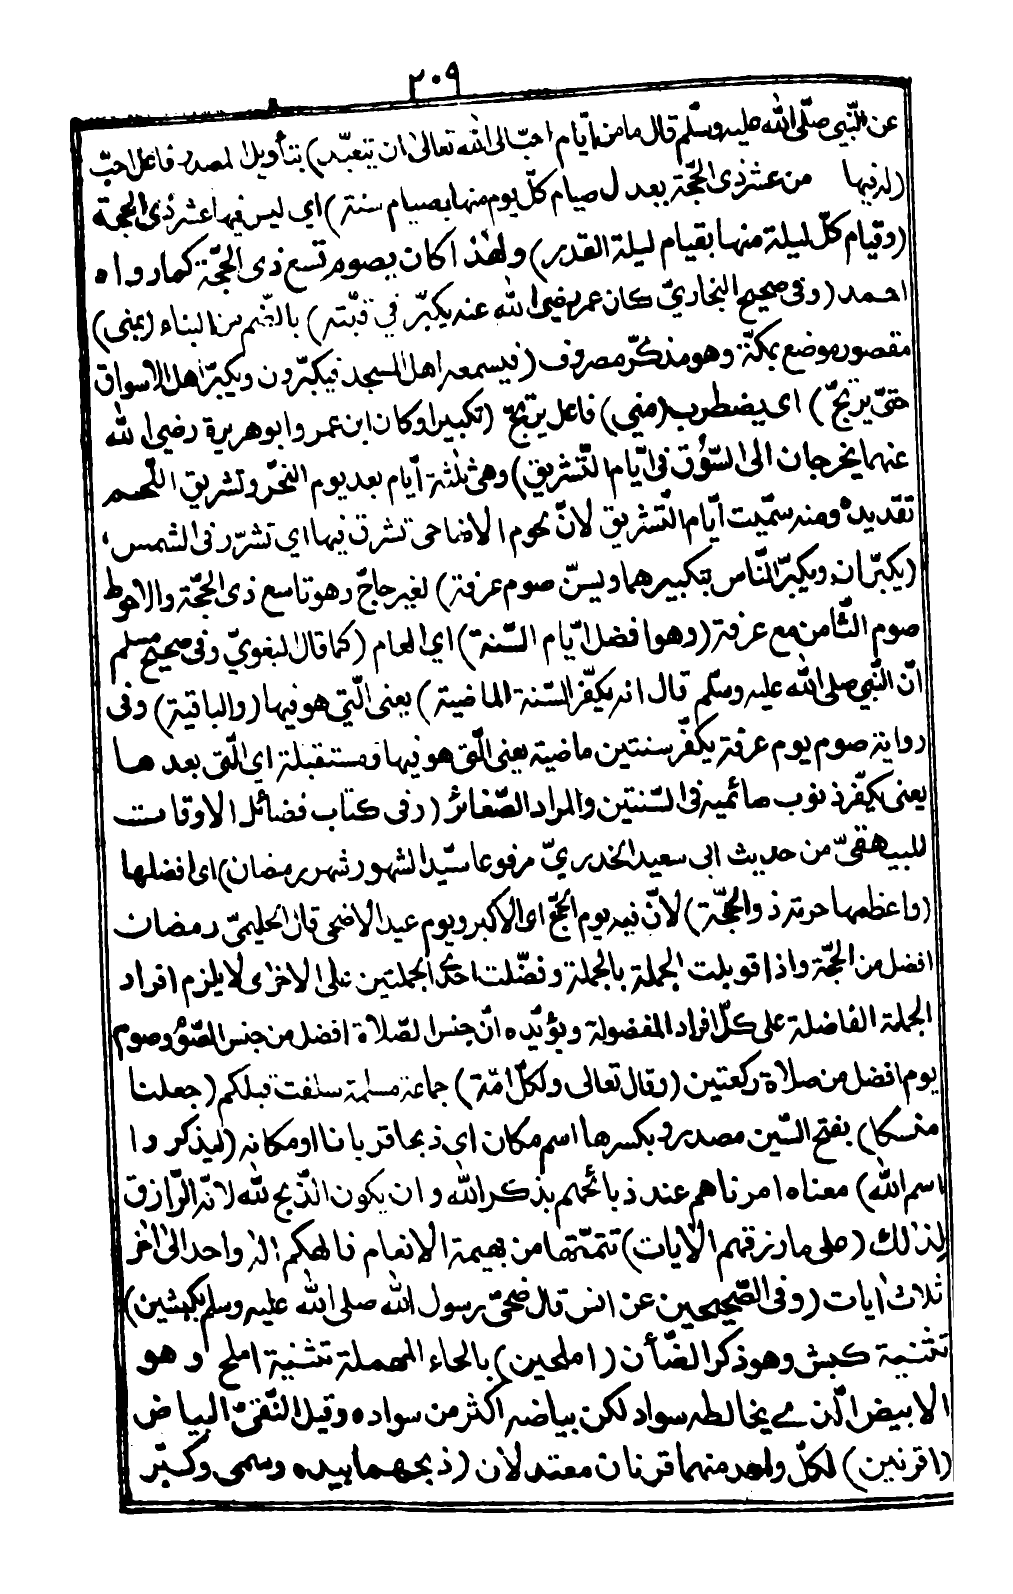 ٢٠٩
عن النّبي صلّى الله عليه وسلّم قال ما من ايّام احبّ الى الله تعالى ان يتعبّد) بتأويل المصدر فاعل احبّ
(له فيها من عشر ذى الحجّة يعدل صيام كلّ يوم منها بصيام سنة) اي ليس فيها عشر ذى الحجة
(وقيام كلّ ليلة منها بقيام ليلة القدر) ولهذا كان يصوم تسع ذى الحجّة كما رواه
احمد (وفى صحيح البخاريّ كان عمر رضى الله عنه يكبّر في قبّته) بالضّم من البناء (بمنى)
مقصور موضع بمكّة وهو مذكّر مصروف (فيسمعه اهل المسجد فيكبّرون ويكبّر اهل الاسواق
حتىّ يرتجّ) اى يضطرب (منى) فاعل يرتجّ (تكبيرا وكان ابن عمر وابو هريرة رضى الله
عنهما يخرجان الى السّوق فى ايّام التّشريق) وهى ثلثة ايّام بعد يوم النّحر وتشريق اللّحم
تقديده ومنه سمّيت ايّام التّشريق لانّ لحوم الاضاحى تشرق فيها اي تشرّر فى الشمس،
(يكبّران ويكبّر النّاس بتكبيرهما ويسنّ صوم عرفة) لغير حاجّ وهو تاسع ذى الحجّة والاحوط
صوم الثّامن مع عرفة (وهو افضل ايّام السّنة) اي العام (كما قال البغويّ وفى صحيح مسلم
انّ النّبي صلى الله عليه وسلّم قال انه يكفّر السّنة الماضية) يعنى الّتي هو فيها (والباقية) وفى
رواية صوم يوم عرفة يكفّر سنتين ماضية يعنى الّتى هو فيها ومستقبلة اي الّتى بعدها
يعنى يكفّر ذنوب صائميه فى السّنتين والمراد الصّغائر (وفى كتاب فضائل الاوقات
للبيهقيّ من حديث ابى سعيد الخدريّ مرفوعا سيّد الشهور شهر رمضان) اى افضلها
(واعظمها حرمة ذو الحجّة) لانّ فيه يوم الحجّ اى الاكبر ويوم عيد الاضحى قال الحليمىّ رمضان
افضل من الحجّة واذا قوبلت الجملة بالجملة وفضّلت احدى الجملتين على الاخرى لا يلزم افراد
الجملة الفاضلة على كلّ افراد المفضولة ويؤيّده انّ جنس الصّلاة افضل من جنس الصّوم وصوم
يوم افضل من صلاة ركعتين (وقال تعالى ولكلّ امّة) جماعة مسلمة سلفت قبلكم (جعلنا
منسكا) بفتح السّين مصدر وبكسرها اسم مكان اى ذبحا قربانا او مكانه (ليذكروا
اسم الله) معناه امرناهم عند ذبائحهم بذكر الله وان يكون الذّبح لله لانّه الرّازق
لذلك (على ما رزقهم الأيات) تتمّتها من بهيمة الانعام فالهكم اله واحد الى اخر
ثلاث ايات (وفى الصّحيحين عن انس قال ضحّى رسول الله صلى الله عليه وسلم بكبشين)
تثنية كبش وهو ذكر الضّأن (املحين) بالحاء المهملة تثنية املح وهو
الابيض الّذى يخالطه سواد لكن بياضه اكثر من سواده وقيل النّقىّ البياض
(اقرنين) لكلّ واحد منهما قرنان معتدلان (ذبحهما بيده وسمى وكبّر